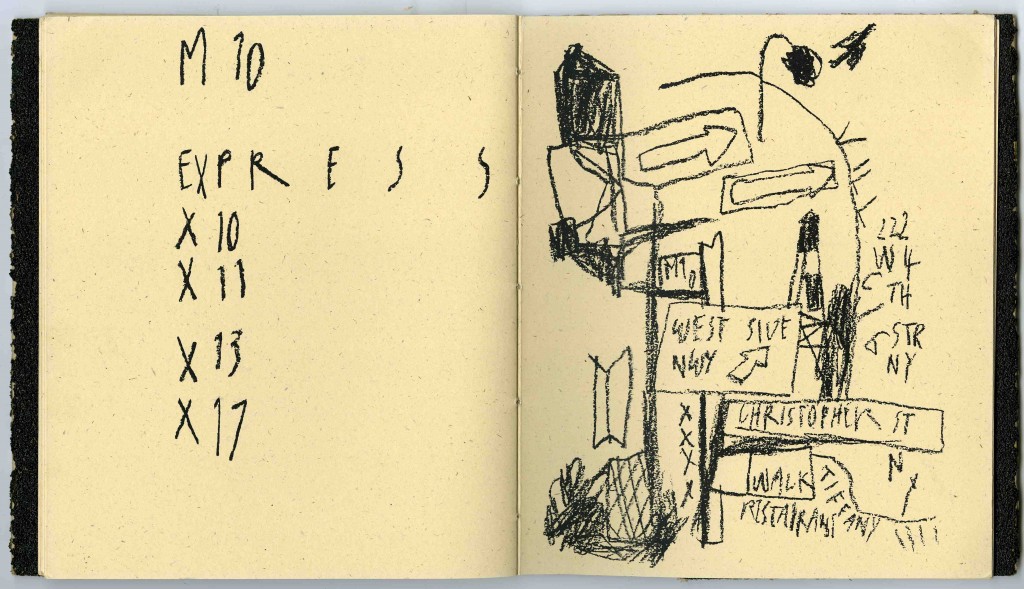 M 10
EXPRESS
X 10
X 11
X 13
X 17
222
W 4
TH
STR
NY
M10
WEST SIDE
HWY
CHRISTOPHER ST
X
X
X
X
NY
WALK
TIFFANY
RESTAIRANT